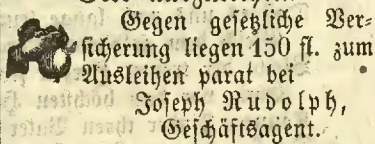 Gegen gesetzliche Ver=
sicherung liegen 150 fl. zum
Ausleihen parat bei
Joseph Rudolph,
Geschäftsagent.